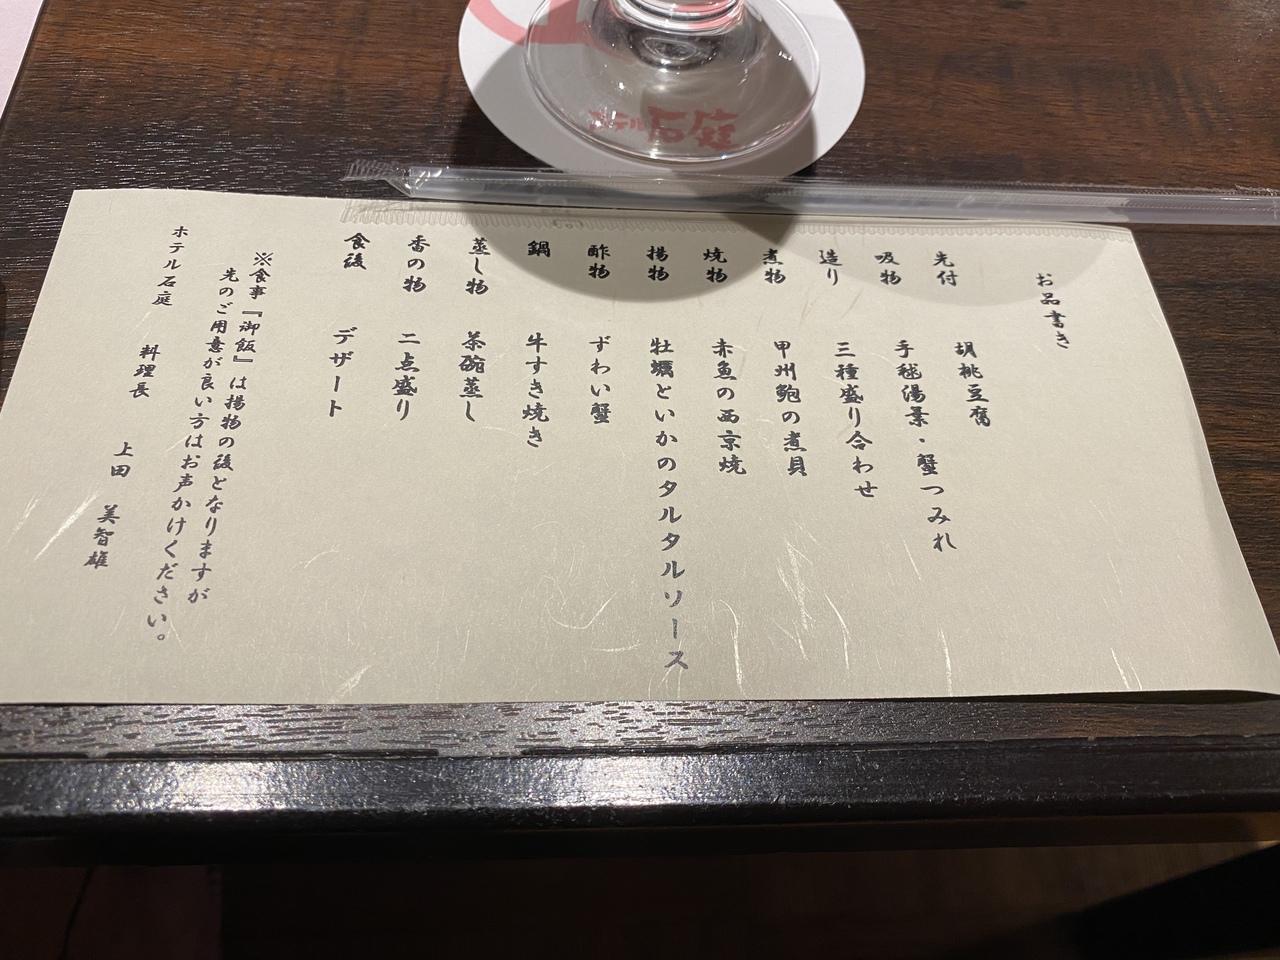 ホテル石庭
お品書き
先付 胡桃豆腐
吸物 手毬湯葉・蟹つみれ
造り 三種盛り合わせ
煮物 甲州鮑の煮貝
焼物 赤魚の西京焼
揚物 牡蠣といかのタルタルソース
酢物 ずわい蟹
鍋 牛すき焼き
蒸し物 茶碗蒸し
香の物 二点盛り
食後 デザート
※食事『御飯』は揚物の後となりますが
先のご用意が良い方はお声かけください。
ホテル石庭 料理長 上田 美智雄